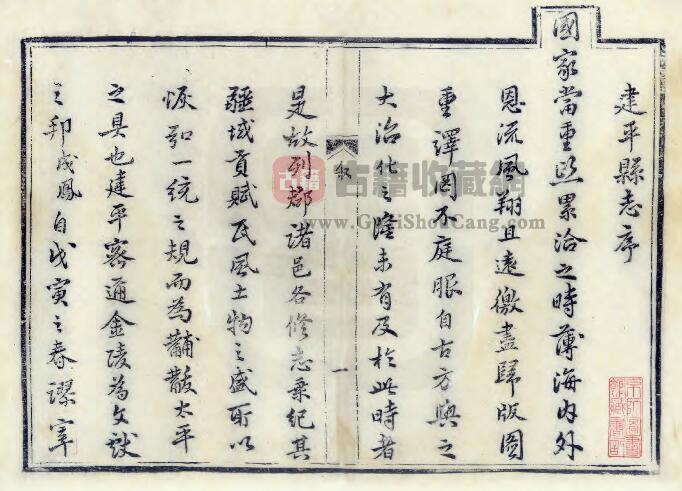 建平縣志序
國家當重熙累洽之時薄海內外
恩流風翔且遠徼盡歸版圖
重譯罔不庭服自古方輿之
大治化之隆未有及於此時者
序
一
是故列郡諸邑各修志乘紀其
疆域貢賦民風土物之盛所以
恢弘一統之規而為黼黻太平
之具也建平密通金陵為文獻
之邦成鳳自戊寅之春謬宰
古籍
古籍收藏網
www.GujiShouCang.com